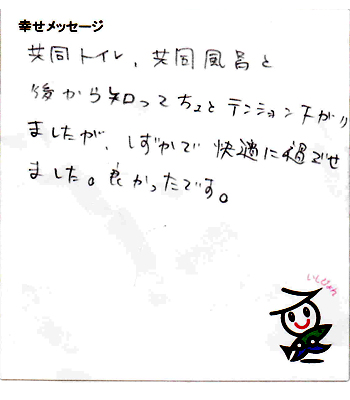 幸せメッセージ
共同トイレ、共同風呂と
後から知ってちょとテンション下がり
ましたが、しずかで快適に過ごせ
ました。良かったです。